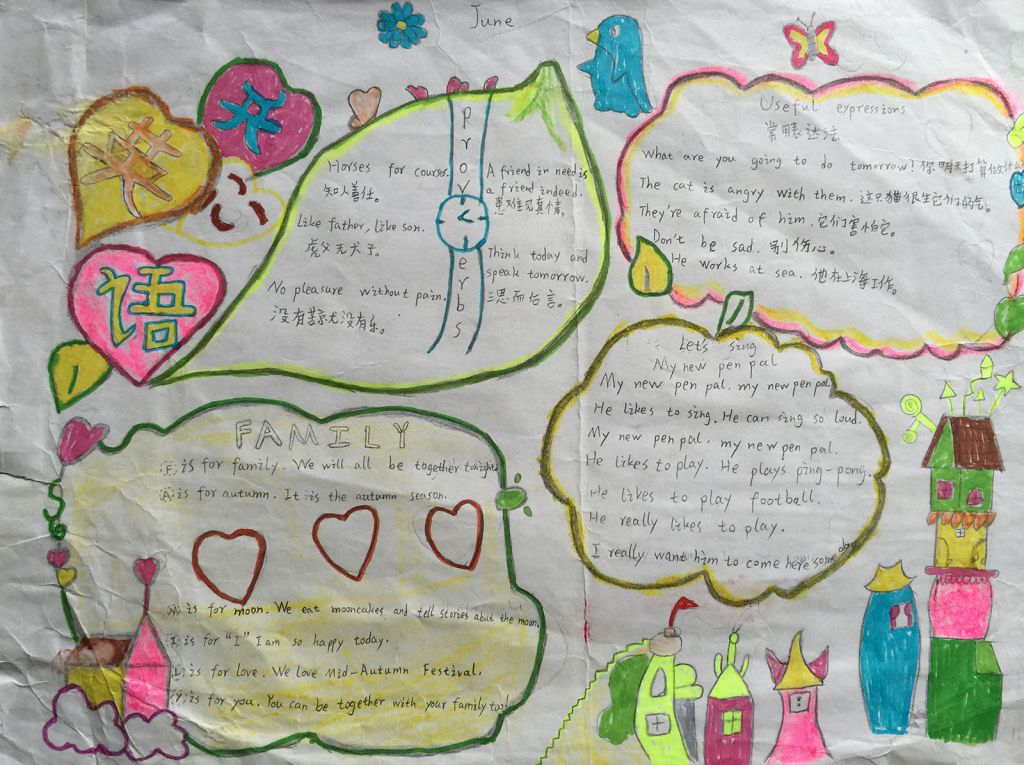 June
英
天
语
Proverbs
Horses for courses.
知人善任。
Like father, like son.
虎父无犬子。
No pleasure without pain.
没有苦就没有乐。
A friend in need is
a friend indeed.
患难见真情。
Think today and
speak tomorrow.
三思而后言。
Useful expressions
常用表达法
What are you going to do tomorrow? 你明天打算做什么
The cat is angry with them. 这只猫很生它们的气。
They're afraid of him. 它们害怕它。
Don't be sad. 别伤心。
He works at sea. 他在上海工作。
Let's sing
My new pen pal
My new pen pal, my new pen pal.
He likes to sing. He can sing so loud.
My new pen pal, my new pen pal.
He likes to play. He plays ping-pong.
He likes to play football.
He really likes to play.
I really want him to come here some day
FAMILY
F is for family. We will all be together tonight
A is for autumn. It is the autumn season.
M is for moon. We eat mooncakes and tell stories about the moon.
I is for "I" I am so happy today.
L is for love. We love Mid-Autumn Festival.
Y is for you. You can be together with your family too!